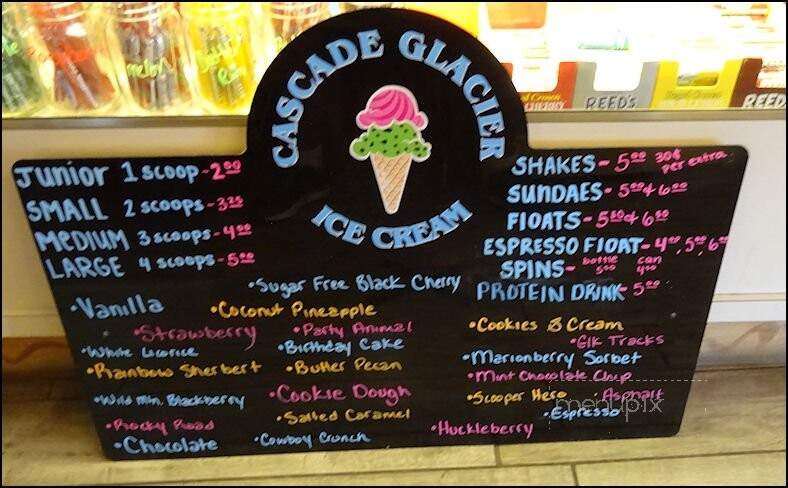 melon
REED'S
REED
CASCADE GLACIER
ICE CREAM
Junior 1 scoop - 2.00
SMALL 2 scoops - 3.25
MEDIUM 3 scoops - 4.00
LARGE 4 scoops - 5.00
SHAKES - 5.00 30¢ per extra
SUNDAES - 5.00 & 6.00
FlOATS - 5.50 & 6.50
ESPRESSO FlOAT - 4.00, 5.00, 6.00
SPINS - bottle 5.00 can 4.00
PROTEIN DRINK - 5.00
•Sugar Free Black Cherry
•Vanilla
•Coconut Pineapple
•Strawberry
•Party Animal
•White Licorice
•Birthday Cake
•Rainbow Sherbert
•Butter Pecan
•Wild Mtn. Blackberry
•Cookie Dough
•Salted Caramel
•Rocky Road
•Chocolate
•Cowboy Crunch
•Cookies & Cream
•Elk Tracks
•Marionberry Sorbet
•Mint Chocolate Chip
•Scooper Hero
•Asphalt
•Espresso
•Huckleberry
menupix